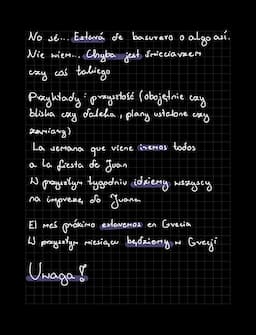 No sé... Estará de basurero o algo así.
Nie wiem... Chyba jest śmieciarzem
czy coś takiego
Przykłady: przyszłość (obojętnie czy
bliska czy daleka, plany ustalone czy
zamiary)
La semana que viene iremos todos
a la fiesta de Juan
W przyszłym tygodniu idziemy wszyscy
na imprezę do Juana
El mes próximo estaremos en Grecia
W przyszłym miesiącu będziemy w Grecji
Uwaga!